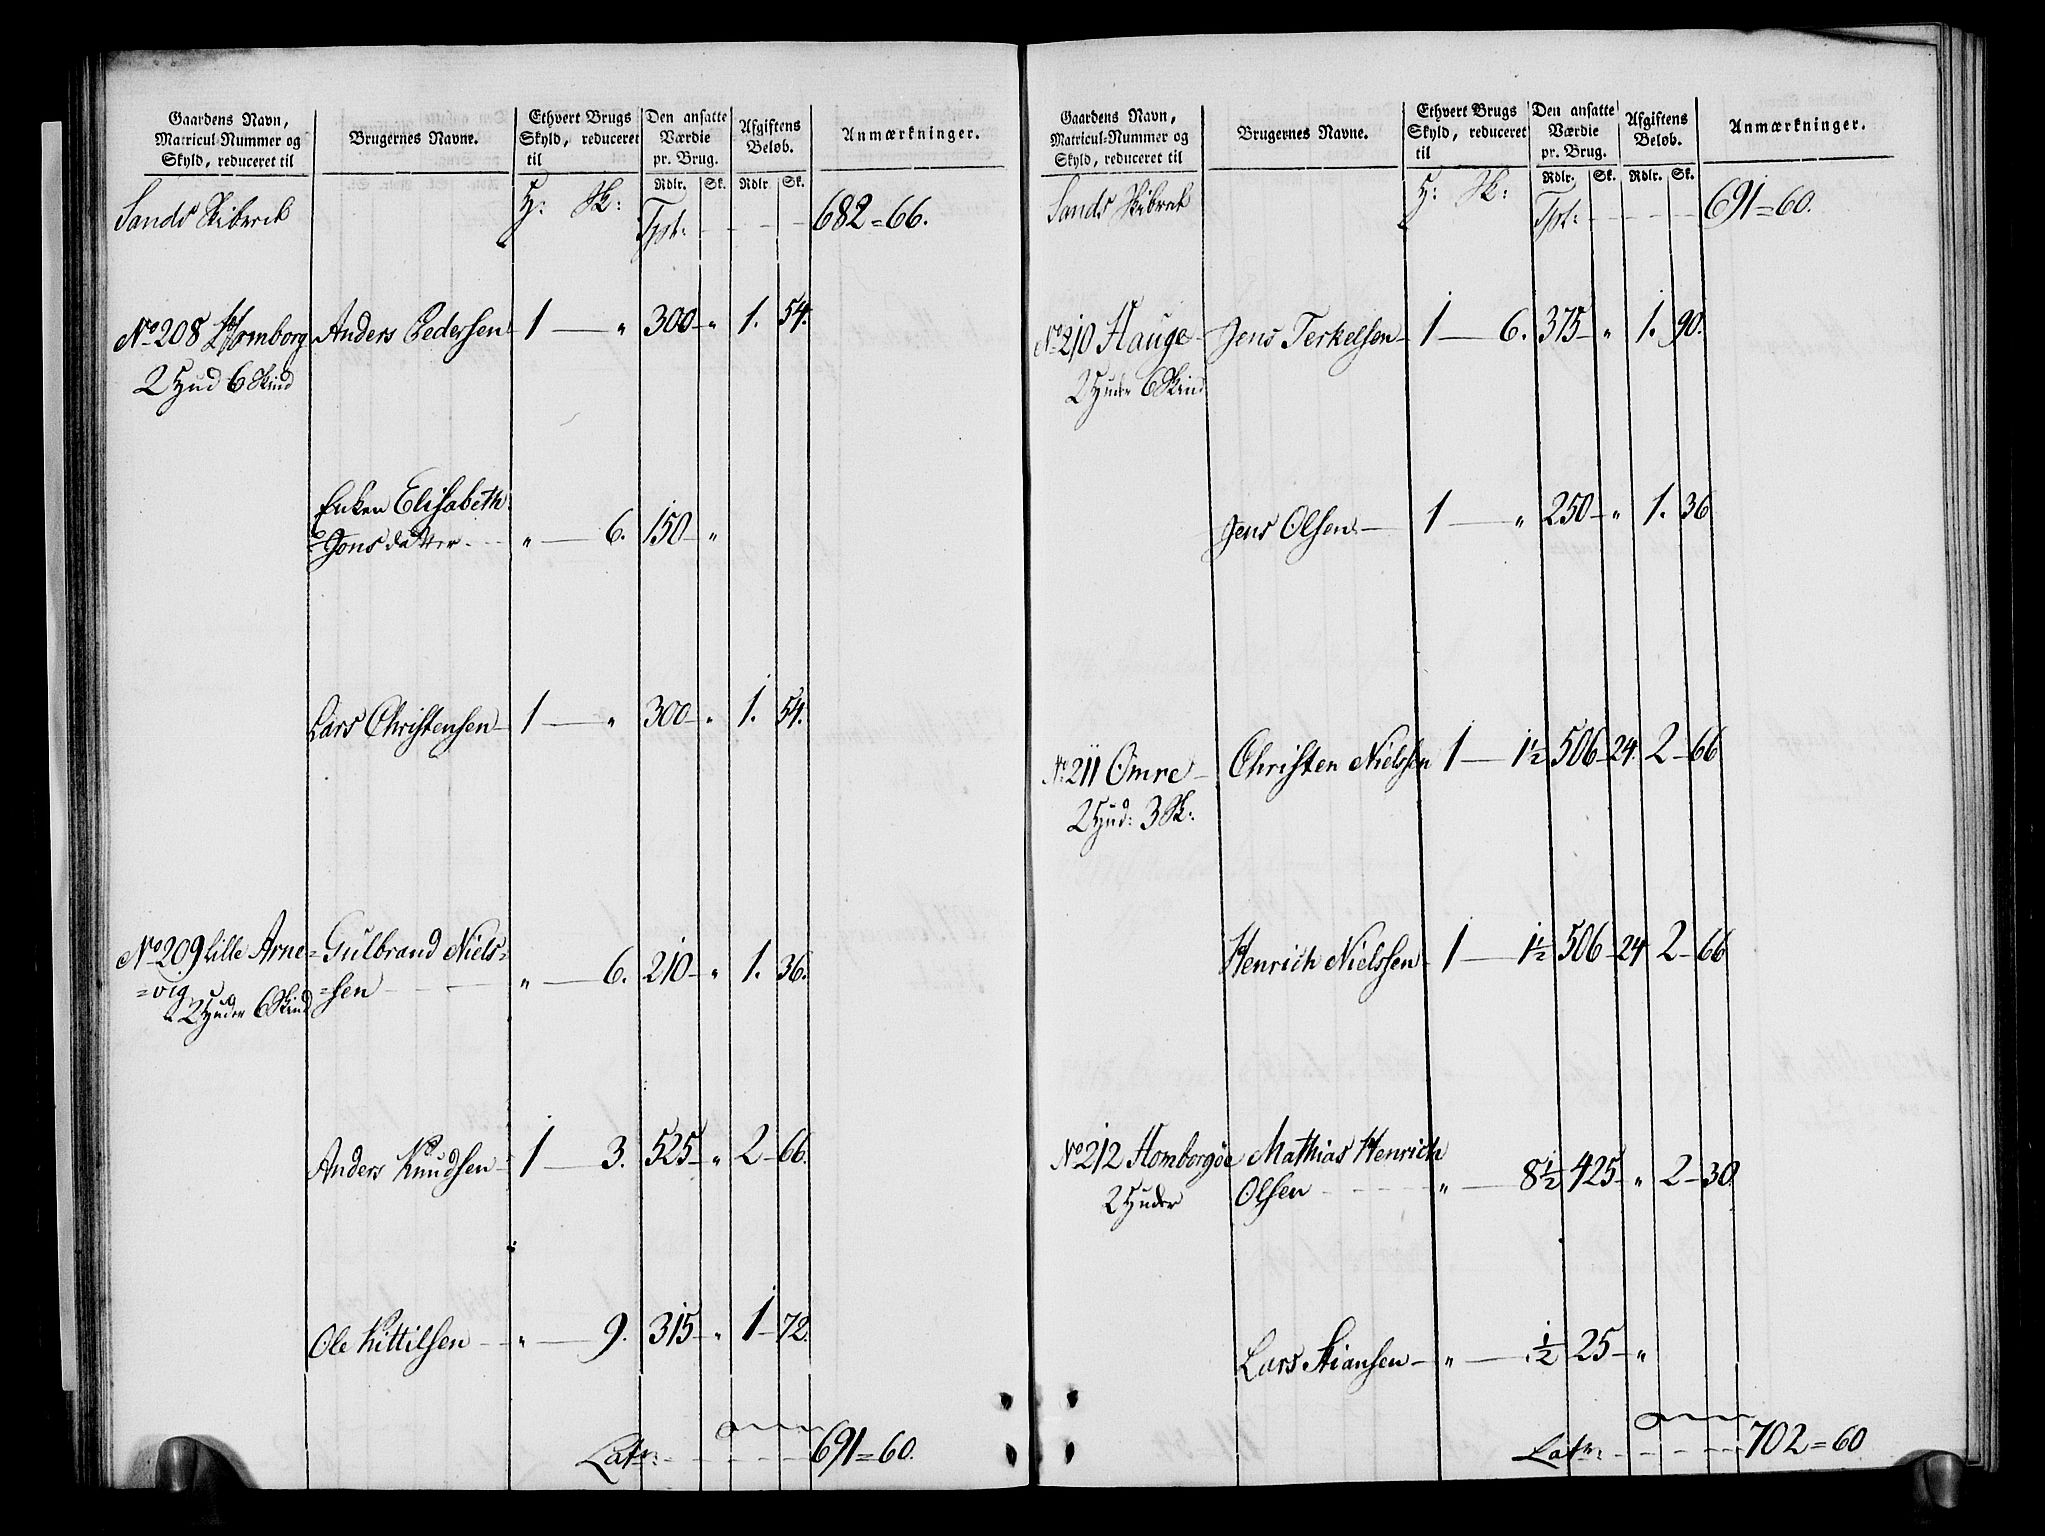 Gaardens Navn, Matricul-Nummer og Skyld, reduceret til | Brugernes Navne. | Ethvert Brugs Skyld, reduceret til | Den ansatte Værdie pr. Brug. | Afgiftens Beløb. | Anmærkninger.
Rdlr. Sk. Rdlr. Sk.
Sands Skibred H: Sk: Tpt: 682=66.
No 208 Homborg Anders Pedersen 1 — „ 300 „ 1. 54.
2 Hud 6 Skind
Enken Elisabeth
=Jonsdatter „ — 6. 150 „
Lars Christensen 1 — „ 300 „ 1. 54.
No 209 lille Arne= Gulbrand Niels=
=vig =sen „ — 6. 210 „ 1. 36.
2 Huder 6 Skind
Anders Knudsen 1 — 3. 525 „ 2 66.
Ole Kittilsen „ — 9. 315 „ 1 72.
Latr: 691=60.
Gaardens Navn, Matricul-Nummer og Skyld, reduceret til | Brugernes Navne. | Ethvert Brugs Skyld, reduceret til | Den ansatte Værdie pr. Brug. | Afgiftens Beløb. | Anmærkninger.
Rdlr. Sk. Rdlr. Sk.
Sands Skibred H: Sk: Tpt: 691=60.
No 210 Hauge Jens Terkelsen 1 — 6. 375 „ 1. 90.
2 Huder 6 Skind
Jens Olsen 1 — „ 250 „ 1. 36
No 211 Omre Christen Nielssen 1 — 1½ 506 24. 2 66
2 Hud: 3 Sk:
Henrich Nielssen 1 — 1½ 506 24 2 66
No 212 Homborgøe Mathias Henrich
2 Huder Olsen „ — 8½ 425 „ 2 30.
Lars Stiansen „ — ½ 25 „
Latr: 702=60